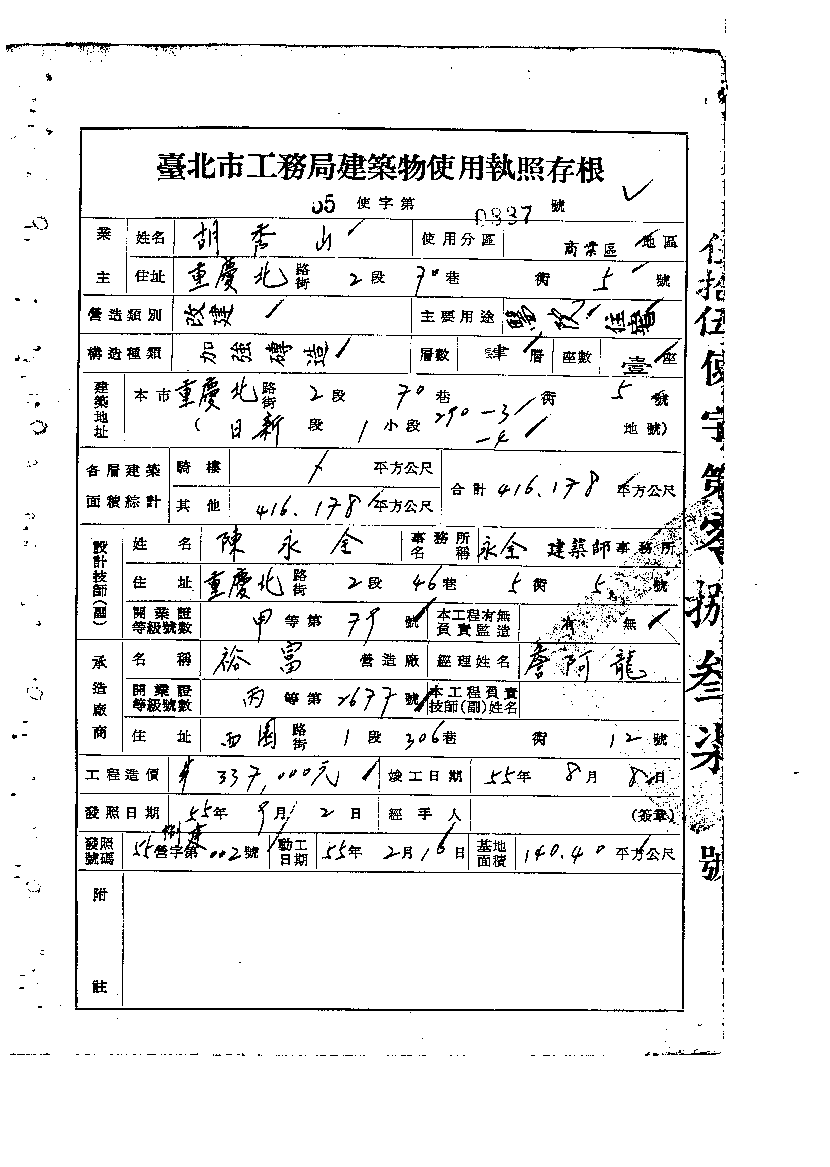 臺北市工務局建築物使用執照存根
55 使字第 0837 號
業主 姓名 胡秀山 使用分區 商業區 地區
住址 重慶北 路街 2 段 70 巷 街 5 號
營造類別 改建 主要用途 醫院 住宅
構造種類 加強磚造 層數 肆 層 座數 壹 座
建築地址 本市 重慶北 路街 2 段 70 巷 街 5 號
( 日新 段 1 小段 290-3 -4 地號)
各層建築面積綜計 騎樓 平方公尺 合計 416.178 平方公尺
其他 416.178 平方公尺
設計技師(副) 姓名 陳永全 事務所名稱 永全 建築師事務所
住址 重慶北 路街 2 段 46 巷 5 街 5 號
開業證等級號數 甲 等第 79 號 本工程有無負責監造 有 無
承造廠商 名稱 裕富 營造廠 經理姓名 詹阿龍
開業證等級號數 丙 等第 2677 號 本工程負責技師(副)姓名
住址 西園 路街 1 段 306 巷 街 12 號
工程造價 337,000元 竣工日期 55年 8月 8日
發照日期 55年 9月 2日 經手人 (簽章)
發照號碼 55營字第 002號 動工日期 55年 2月 16日 基地面積 140.40 平方公尺
附註
伍拾伍使字第零捌叁柒號